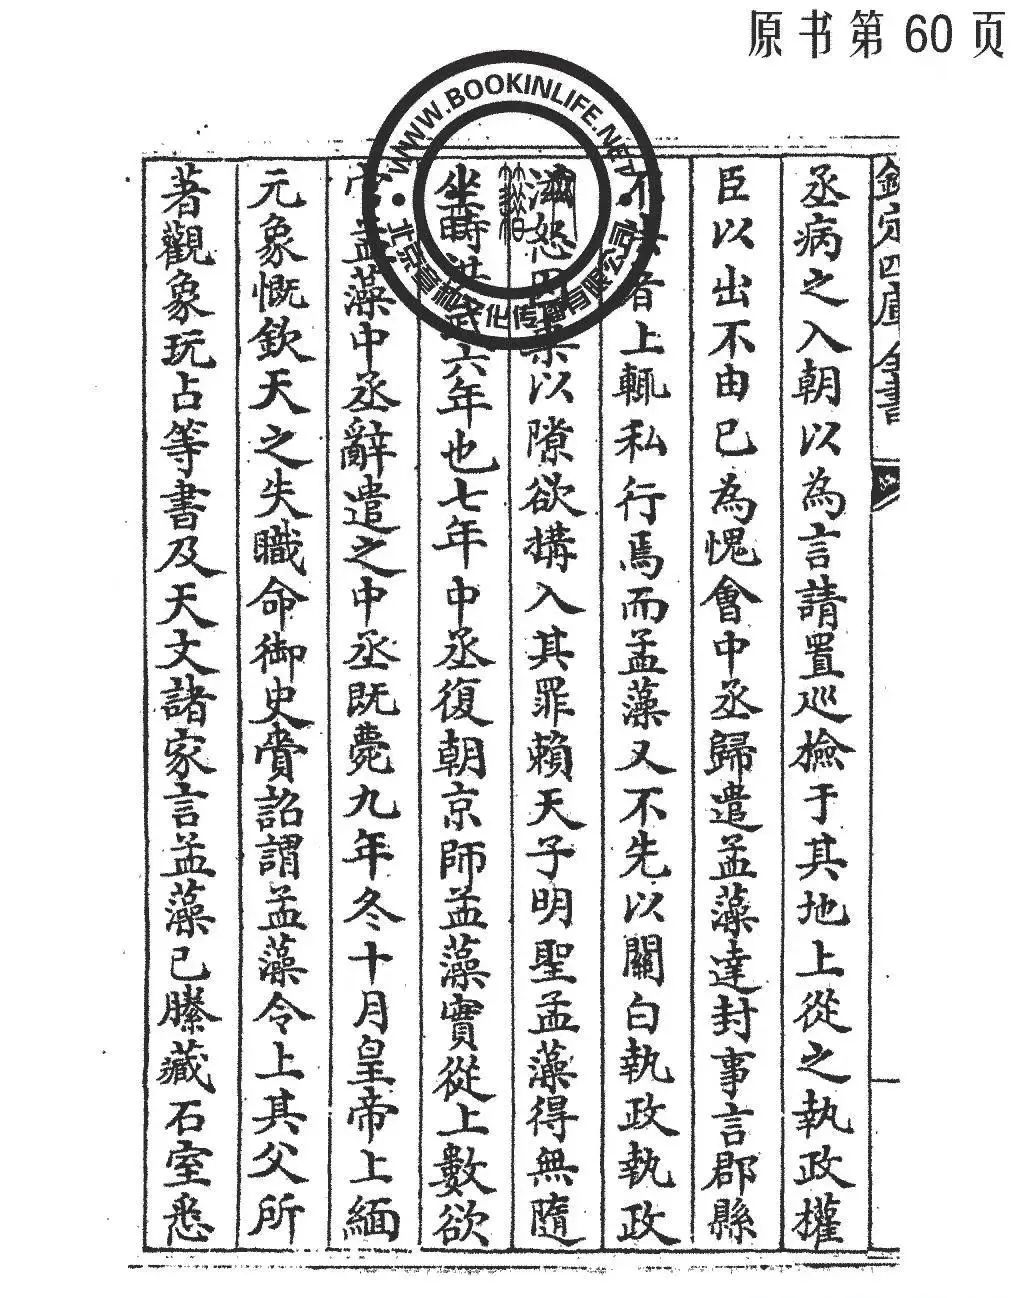 原书第60页
WWW.BOOKINLIFE.NET
北京 文化传播有限公司
欽定四庫全書
丞病之入朝以為言請置巡檢于其地上從之執政權
臣以出不由已為愧會中丞歸遣孟藻達封事言郡縣
不 者上輒私行焉而孟藻又不先以關白執政執政
滋怒 以隙欲搆入其罪賴天子明聖孟藻得無隨
坐時洪武六年也七年中丞復朝京師孟藻實從上數欲
官孟藻中丞辭遣之中丞既薨九年冬十月皇帝上緬
元象慨欽天之失職命御史賫詔謂孟藻令上其父所
著觀象玩占等書及天文諸家言孟藻已縢藏石室悉